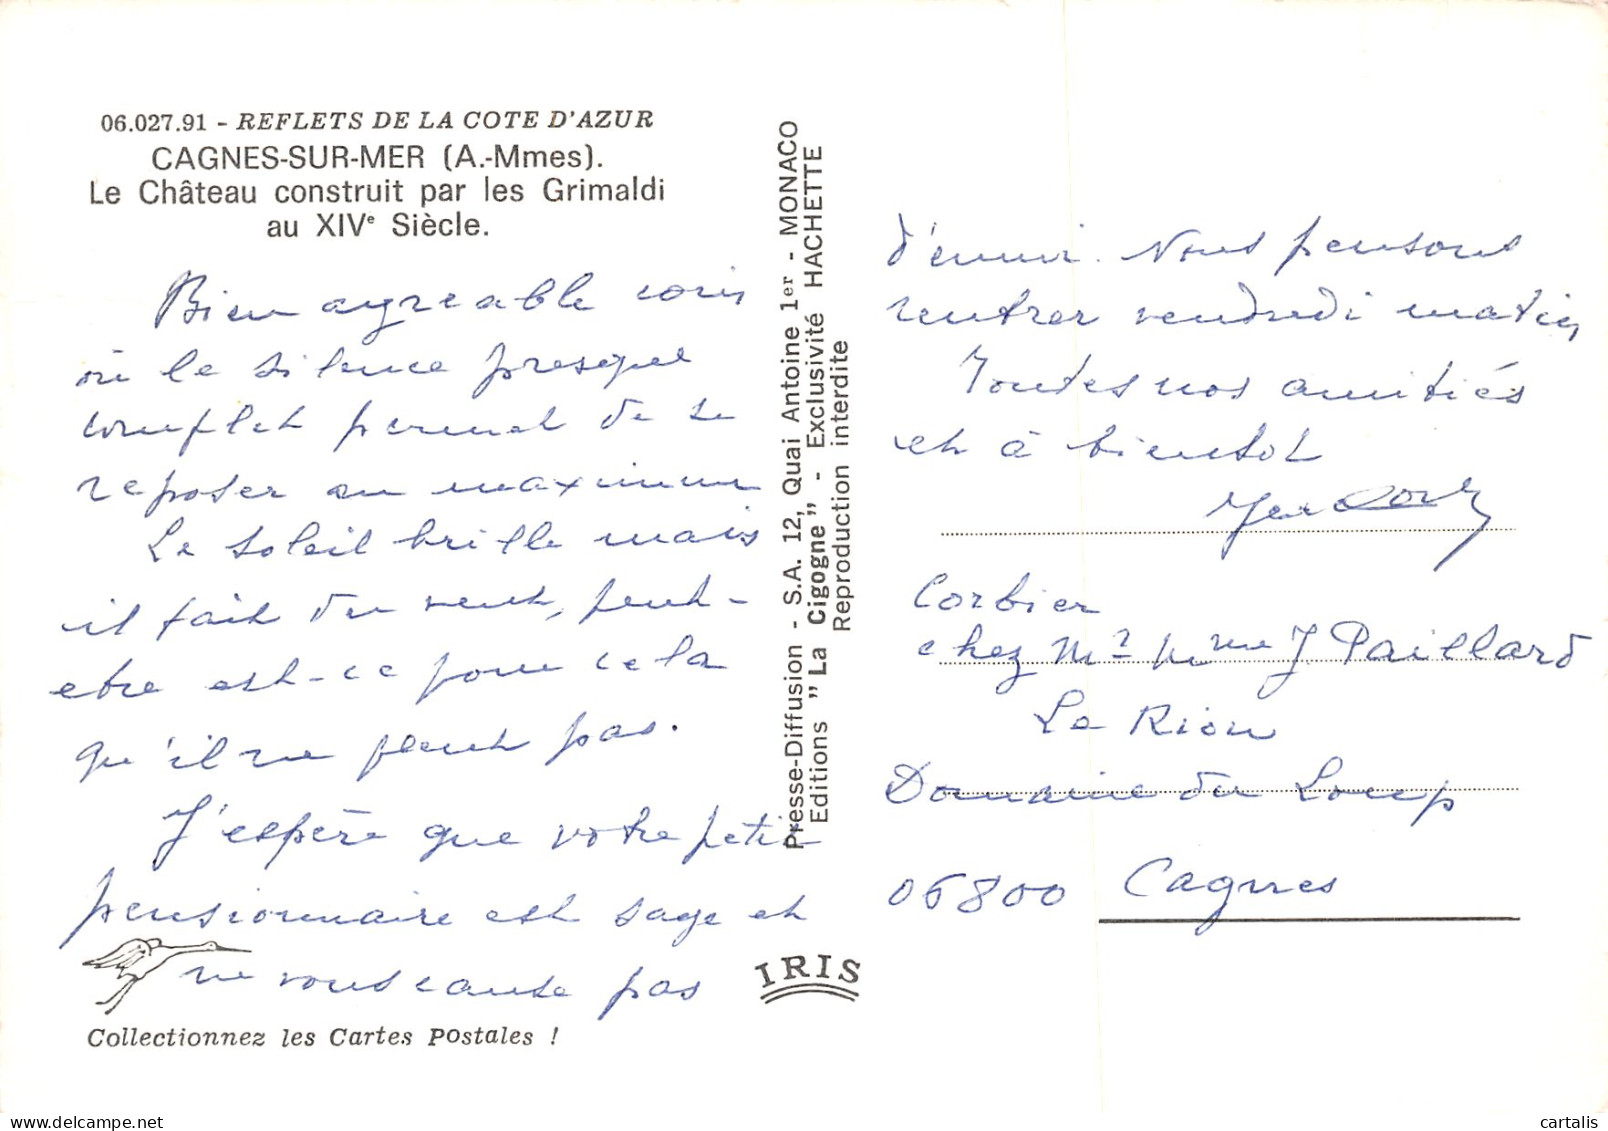 06.027.91 - REFLETS DE LA COTE D'AZUR
CAGNES-SUR-MER (A.-Mmes).
Le Château construit par les Grimaldi
au XIVe Siècle.
Bien agreable coin
où le silence presque
complet permet de se
reposer au maximum
Le soleil brille mais
il fait du vent, peut-
etre est-ce pour cela
qu'il ne pleut pas.
J'espère que votre petit
pensionnaire est sage et
ne vous cause pas
Collectionnez les Cartes Postales !
Presse-Diffusion - S.A. 12, Quai Antoine 1er - MONACO
Editions "La Cigogne" - Exclusivité HACHETTE
Reproduction interdite
IRIS
d'ennui. Nous pensons
rentrer vendredi matin
Toutes nos amitiés
et à bientot
Corbier
chez Mr Mme J Paillard
Le Riou
Domaine du Loup
06800 Cagnes
cartalis